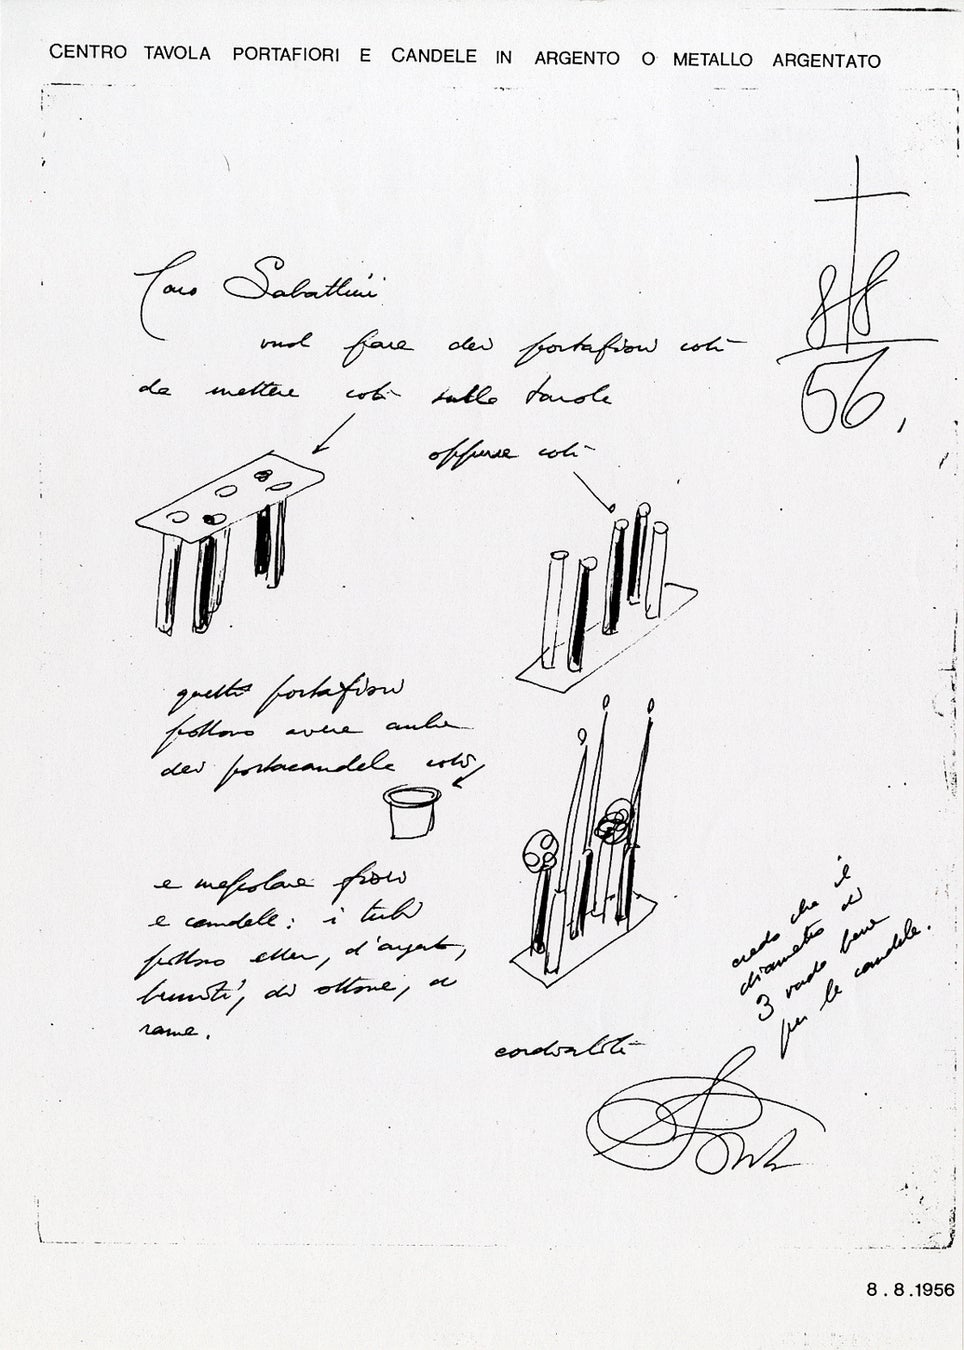 CENTRO TAVOLA PORTAFIORI E CANDELE IN ARGENTO O METALLO ARGENTATO
Caro Sabattini
vuol fare dei portafiori così
da mettere così sulla tavola
oppure così
88
56.
questi portafiori
possono avere anche
dei portacandele così,
e mescolare fiori
e candele: i tubi
possono esser, d'argento,
bruniti, di ottone, di
rame.
credo che il
diametro di
3 vada bene
per le candele.
cordialità
Ponti
8.8.1956